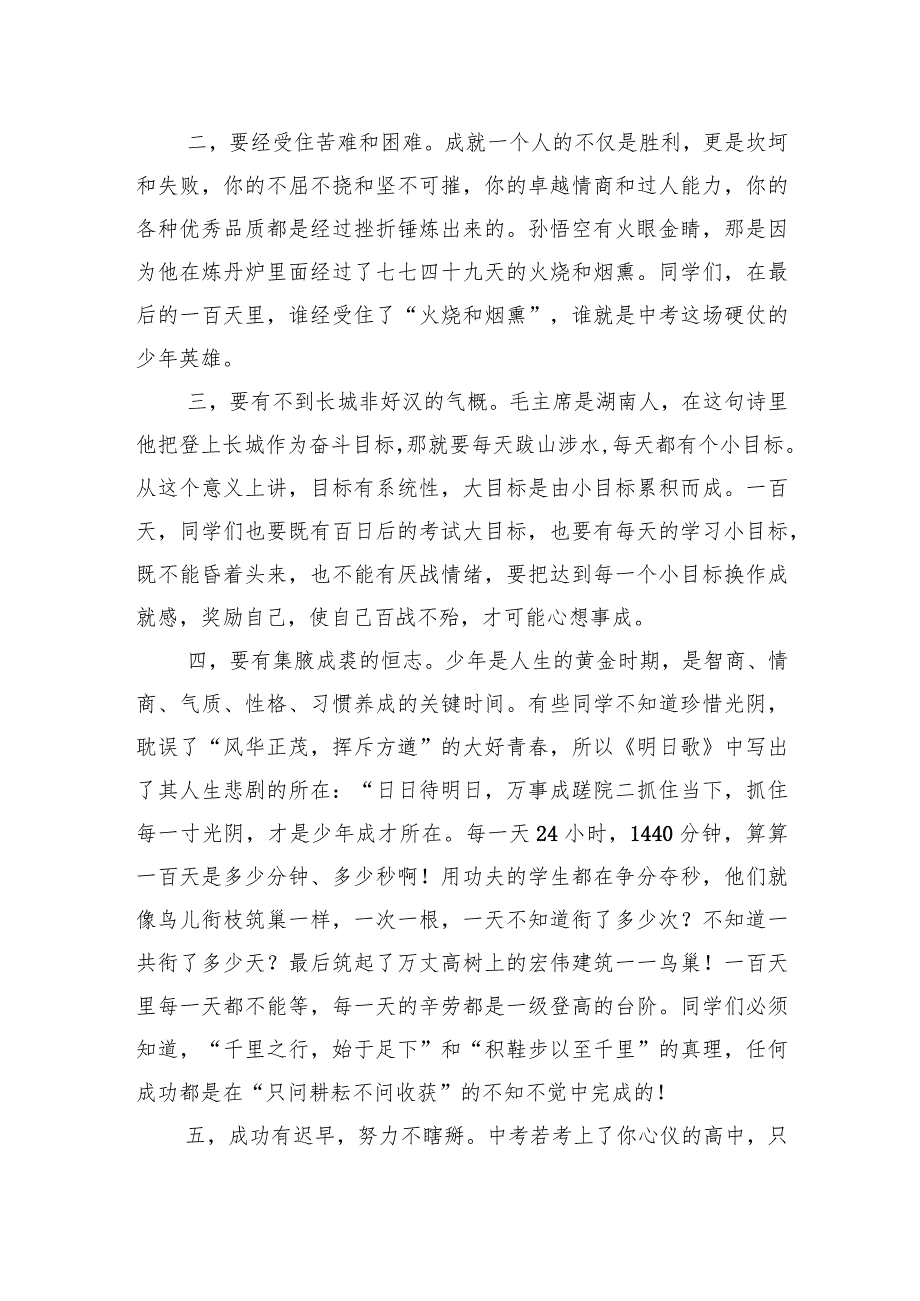 二，要经受住苦难和困难。成就一个人的不仅是胜利，更是坎坷
和失败，你的不屈不挠和坚不可摧，你的卓越情商和过人能力，你的
各种优秀品质都是经过挫折锤炼出来的。孙悟空有火眼金睛，那是因
为他在炼丹炉里面经过了七七四十九天的火烧和烟熏。同学们，在最
后的一百天里，谁经受住了“火烧和烟熏”，谁就是中考这场硬仗的
少年英雄。
三，要有不到长城非好汉的气概。毛主席是湖南人，在这句诗里
他把登上长城作为奋斗目标,那就要每天跋山涉水,每天都有个小目标。
从这个意义上讲，目标有系统性，大目标是由小目标累积而成。一百
天，同学们也要既有百日后的考试大目标，也要有每天的学习小目标，
既不能昏着头来，也不能有厌战情绪，要把达到每一个小目标换作成
就感，奖励自己，使自己百战不殆，才可能心想事成。
四，要有集腋成裘的恒志。少年是人生的黄金时期，是智商、情
商、气质、性格、习惯养成的关键时间。有些同学不知道珍惜光阴，
耽误了“风华正茂，挥斥方遒”的大好青春，所以《明日歌》中写出
了其人生悲剧的所在：“日日待明日，万事成蹉院二抓住当下，抓住
每一寸光阴，才是少年成才所在。每一天 24 小时，1440 分钟，算算
一百天是多少分钟、多少秒啊！用功夫的学生都在争分夺秒，他们就
像鸟儿衔枝筑巢一样，一次一根，一天不知道衔了多少次？不知道一
共衔了多少天？最后筑起了万丈高树上的宏伟建筑一一鸟巢！一百天
里每一天都不能等，每一天的辛劳都是一级登高的台阶。同学们必须
知道，“千里之行，始于足下”和“积鞋步以至千里”的真理，任何
成功都是在“只问耕耘不问收获”的不知不觉中完成的！
五，成功有迟早，努力不瞎掰。中考若考上了你心仪的高中，只